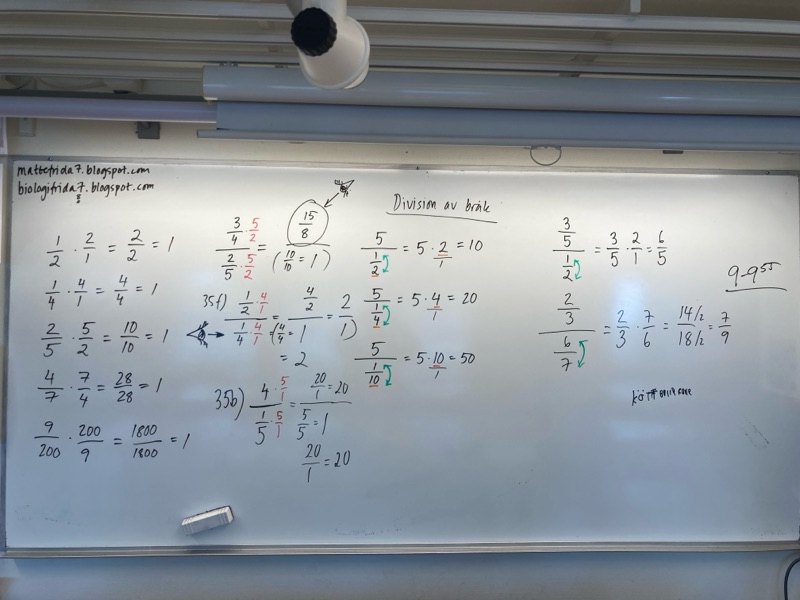 mattefrida7.blogspot.com
biologifrida7.blogspot.com
Division av bråk
1/2 · 2/1 = 2/2 = 1
1/4 · 4/1 = 4/4 = 1
2/5 · 5/2 = 10/10 = 1
4/7 · 7/4 = 28/28 = 1
9/200 · 200/9 = 1800/1800 = 1
3/4 · 5/2 / 2/5 · 5/2 = 15/8 / (10/10 = 1)
35f) 1/2 · 4/1 / 1/4 · 4/1 = 4/2 / (4/4 = 1 = 2/1)
= 2
35b) 4 · 5/1 / 1/5 · 5/1 = 20/1 = 20 / 5/5 = 1
20/1 = 20
5 / 1/2 = 5 · 2/1 = 10
5 / 1/4 = 5 · 4/1 = 20
5 / 1/10 = 5 · 10/1 = 50
3/5 / 1/2 = 3/5 · 2/1 = 6/5
2/3 / 6/7 = 2/3 · 7/6 = 14/2 / 18/2 = 7/9
9-9⁵⁵